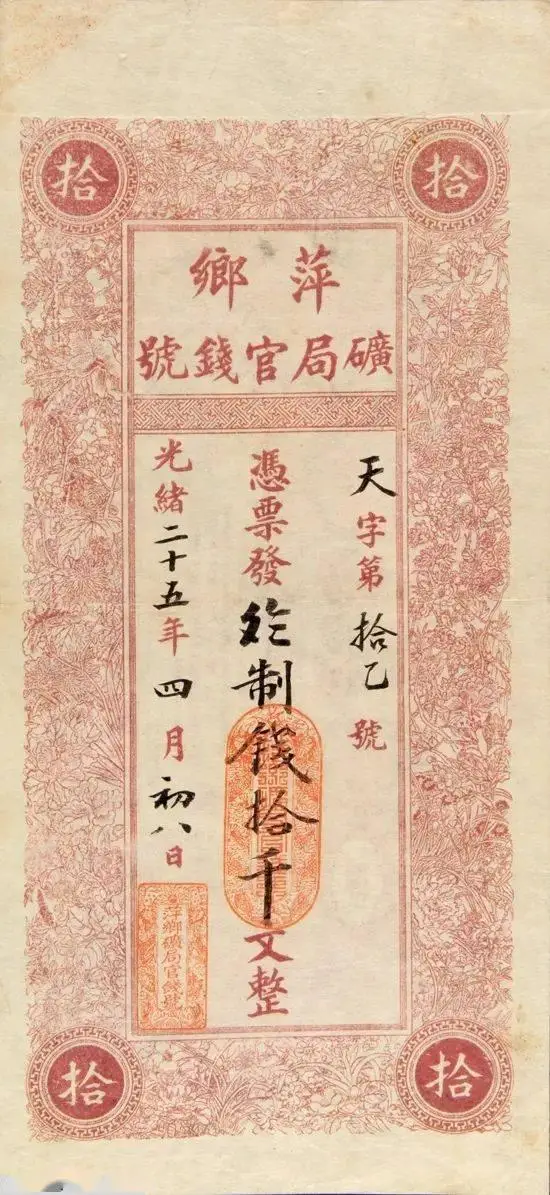 拾
拾
萍鄉
礦局官錢號
天字第拾乙號
憑票發
制錢拾千文整
光緒二十五年四月初八日
萍鄉礦局官錢號
拾
拾